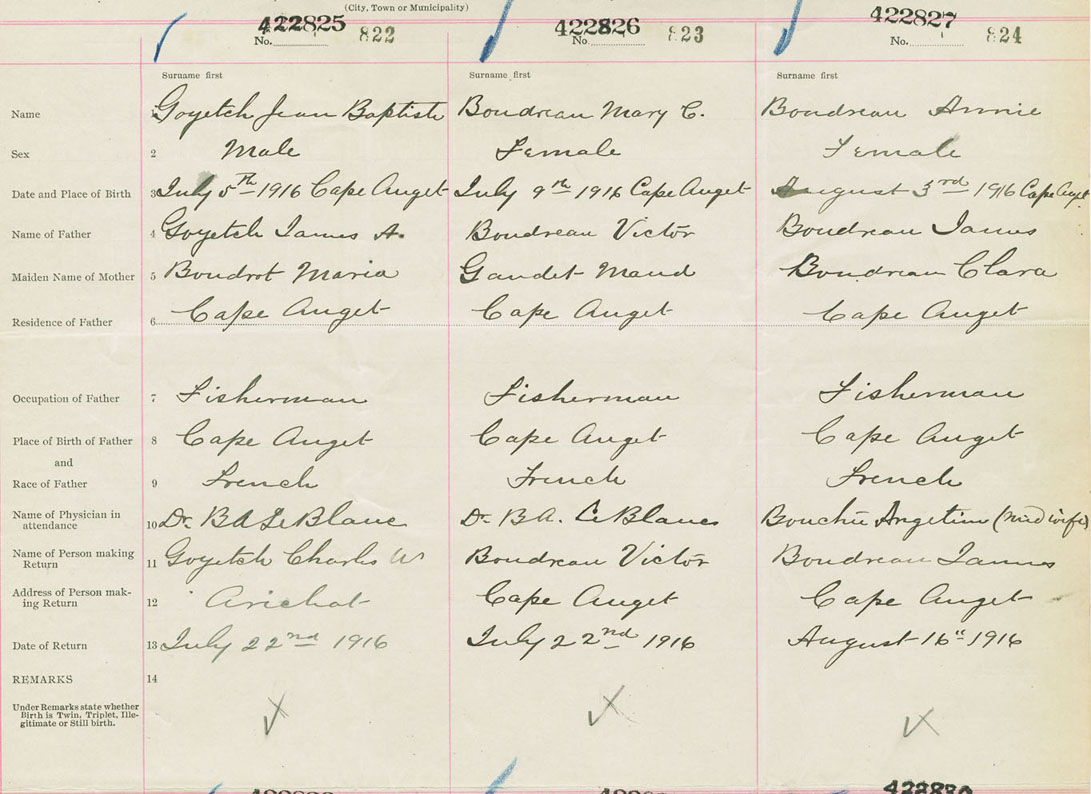 (City, Town or Municipality)
422825 422826 422827
No. 822 No. 823 No. 824
Surname first Surname first Surname first
Name 1 Goyetch Jean Baptiste Boudreau Mary C. Boudreau Annie
Sex 2 Male Female Female
Date and Place of Birth 3 July 5th 1916 Cape Auget July 9th 1916 Cape Auget August 3rd 1916 Cape Auget
Name of Father 4 Goyetch James A. Boudreau Victor Boudreau James
Maiden Name of Mother 5 Boudrot Maria Gaudet Maud Boudreau Clara
Residence of Father 6 Cape Auget Cape Auget Cape Auget
Occupation of Father 7 Fisherman Fisherman Fisherman
Place of Birth of Father 8 Cape Auget Cape Auget Cape Auget
and
Race of Father 9 French French French
Name of Physician in
attendance 10 Dr. B A LeBlanc Dr. B A. LeBlanc Bouchie (midwife)
Name of Person making
Return 11 Goyetch Charles W Boudreau Victor Boudreau James
Address of Person mak-
ing Return 12 Arichat Cape Auget Cape Auget
Date of Return 13 July 22nd 1916 July 22nd 1916 August 16" 1916
REMARKS 14
Under Remarks state whether
Birth is Twin, Triplet, Ille-
gitimate or Still birth.